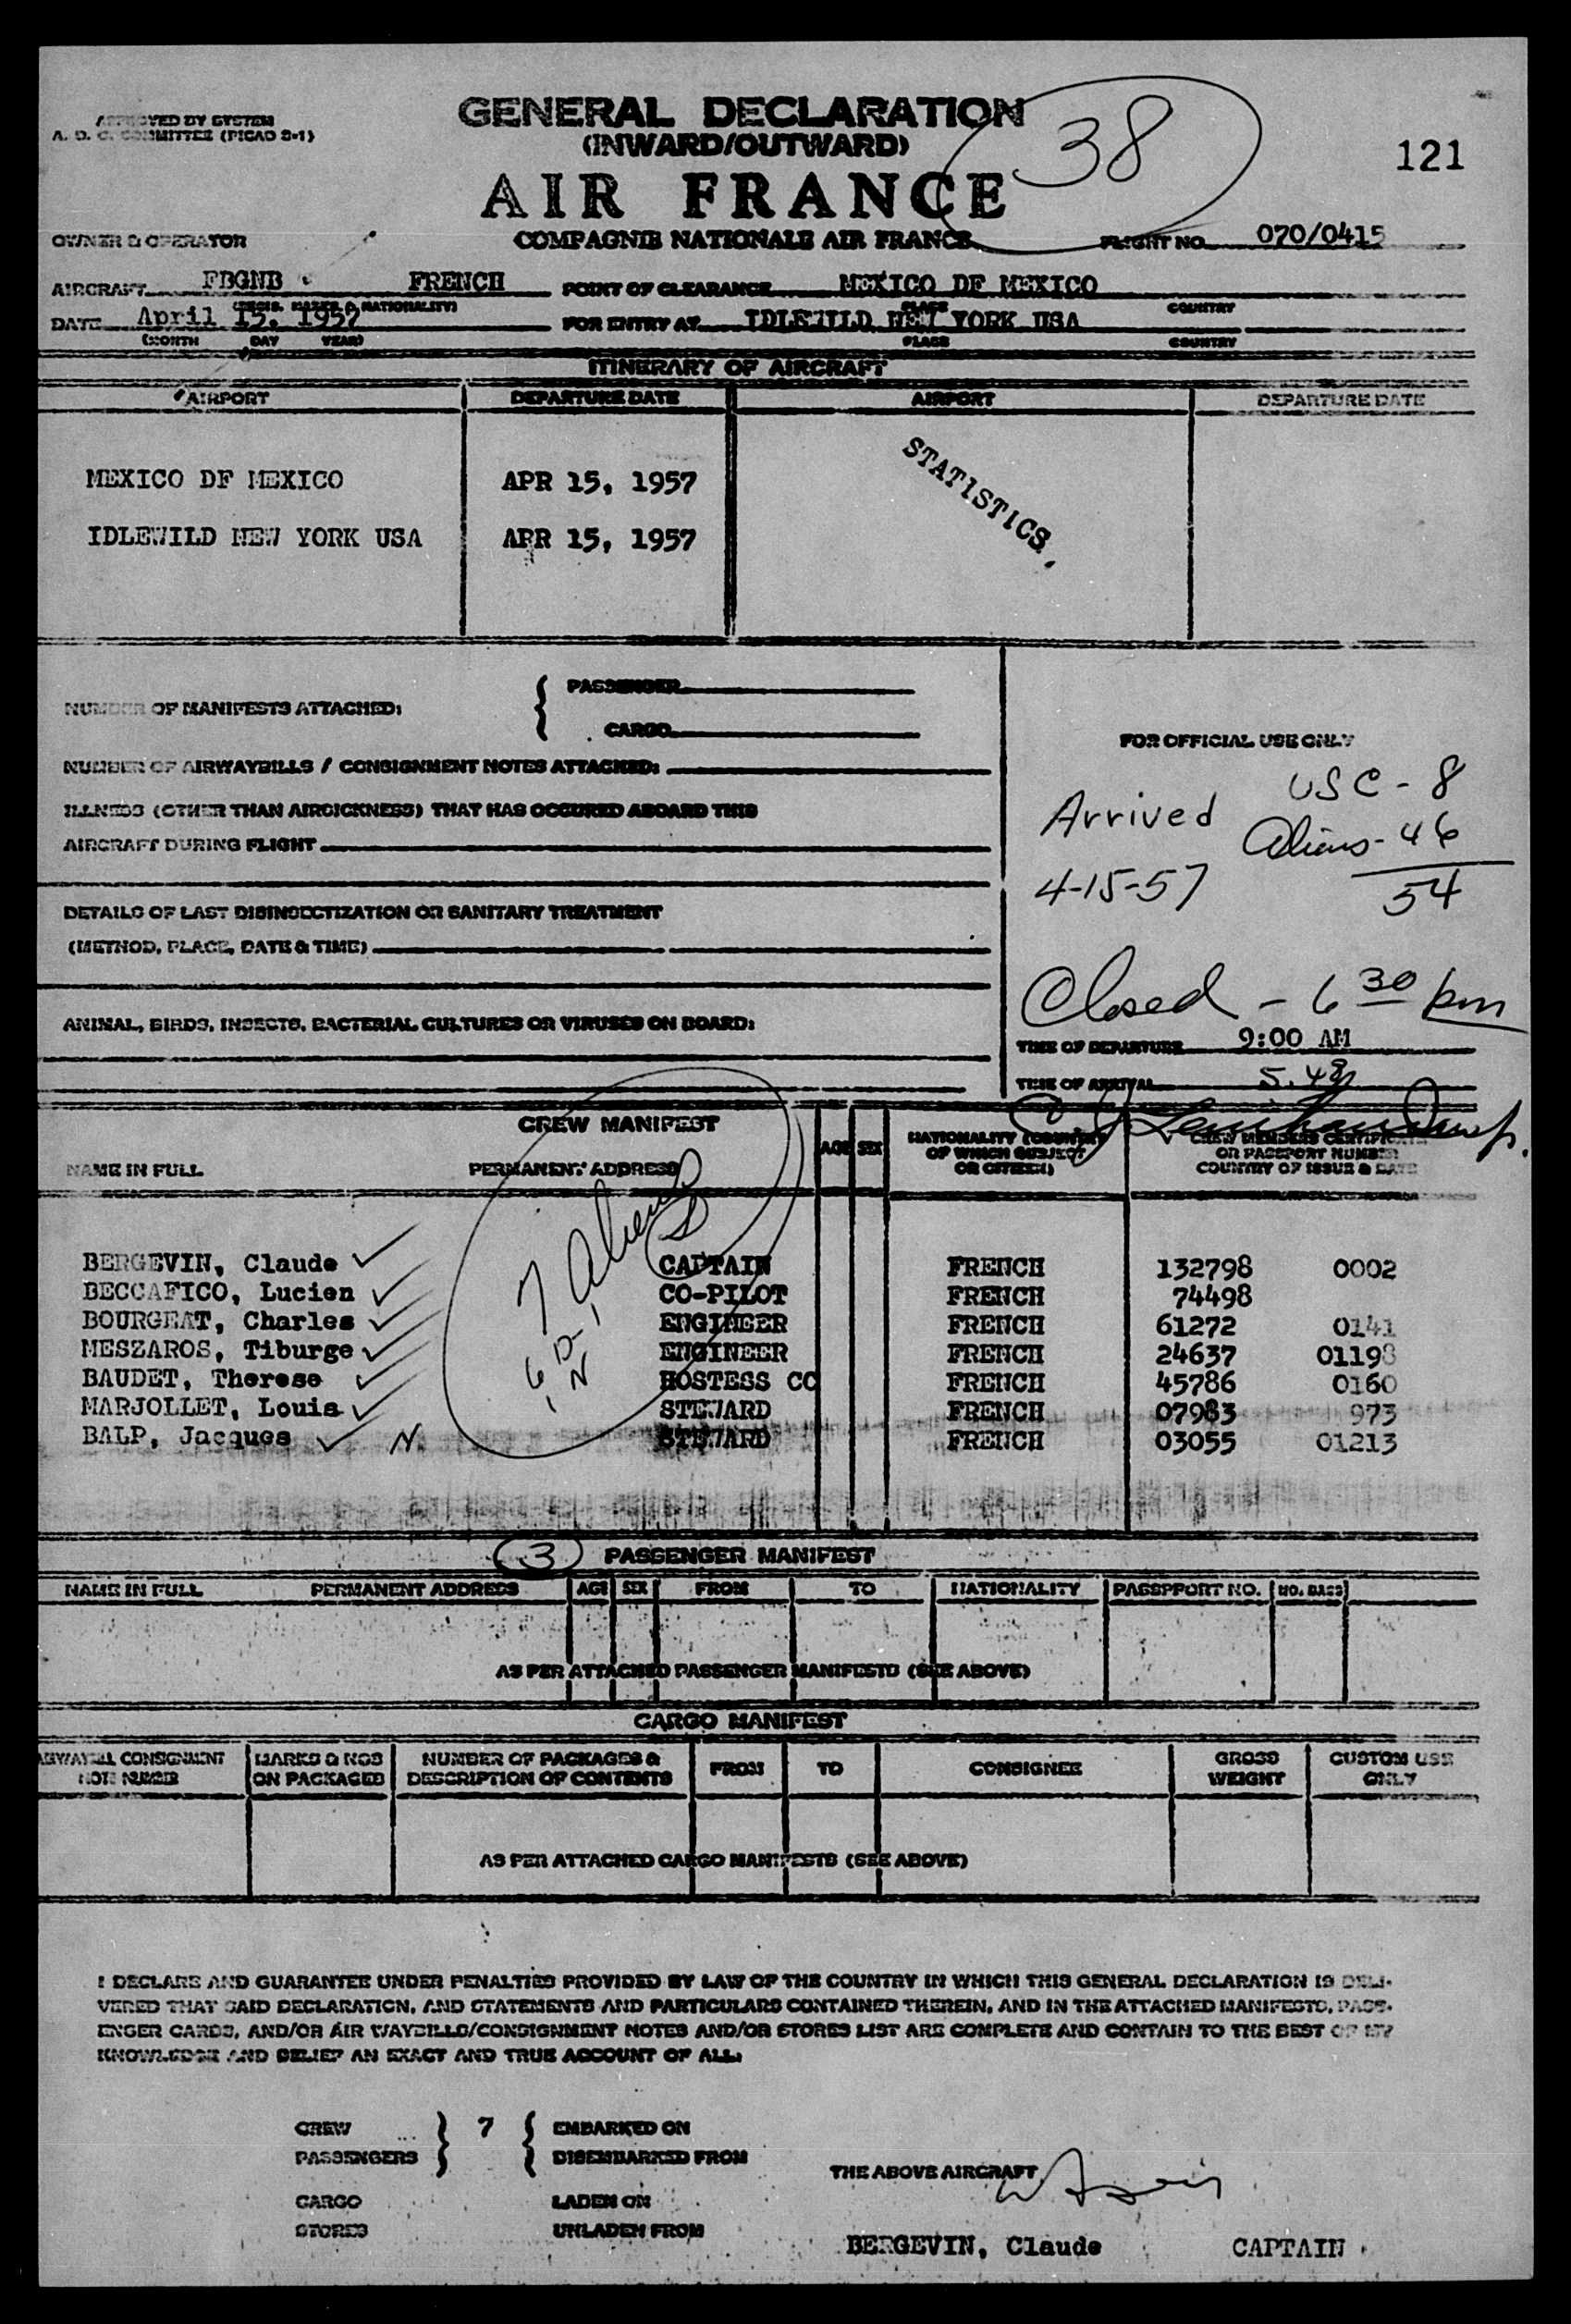 APPROVED BY SYSTEM
A. O. C. COMMITTEE (PICAO 2-1)
GENERAL DECLARATION
(INWARD/OUTWARD)
38
121
AIR FRANCE
OWNER & OPERATOR COMPAGNIE NATIONALE AIR FRANCE FLIGHT NO. 070/0415
AIRCRAFT FBGNB FRENCH POINT OF CLEARANCE MEXICO DF MEXICO
(REGIS. MARKS & NATIONALITY) PLACE COUNTRY
DATE April 15, 1957 FOR ENTRY AT IDLEWILD NEW YORK USA
(MONTH DAY YEAR) PLACE COUNTRY
ITINERARY OF AIRCRAFT
AIRPORT DEPARTURE DATE AIRPORT DEPARTURE DATE
STATISTICS.
MEXICO DF MEXICO APR 15, 1957
IDLEWILD NEW YORK USA APR 15, 1957
NUMBER OF MANIFESTS ATTACHED: { PASSENGER
CARGO
NUMBER OF AIRWAYBILLS / CONSIGNMENT NOTES ATTACHED:
ILLNESS (OTHER THAN AIRSICKNESS) THAT HAS OCCURED ABOARD THIS
AIRCRAFT DURING FLIGHT
DETAILS OF LAST DISINSECTIZATION OR SANITARY TREATMENT
(METHOD, PLACE, DATE & TIME)
ANIMAL, BIRDS, INSECTS, BACTERIAL CULTURES OR VIRUSES ON BOARD:
FOR OFFICIAL USE ONLY
USC - 8
Arrived Aliens - 46
4-15-57 54
Closed - 6 30 pm
TIME OF DEPARTURE 9:00 AM
TIME OF ARRIVAL 5.48p
CREW MANIFEST
NAME IN FULL PERMANENT ADDRESS AGE SEX NATIONALITY (COUNTRY OF WHICH SUBJECT OR CITIZEN) CREW MEMBERS CERTIFICATE OR PASSPORT NUMBER COUNTRY OF ISSUE & DATE
7 Aliens
6 D-1
1 N
BERGEVIN, Claude CAPTAIN FRENCH 132798 0002
BECCAFICO, Lucien CO-PILOT FRENCH 74498
BOURGEAT, Charles ENGINEER FRENCH 61272 0141
MESZAROS, Tiburge ENGINEER FRENCH 24637 01198
BAUDET, Therese HOSTESS CC FRENCH 45786 0160
MARJOLLET, Louis STEWARD FRENCH 07983 973
BALP, Jacques N. STEWARD FRENCH 03055 01213
3 PASSENGER MANIFEST
NAME IN FULL PERMANENT ADDRESS AGE SEX FROM TO NATIONALITY PASSPPORT NO. NO. BAGS
AS PER ATTACHED PASSENGER MANIFESTS (SEE ABOVE)
CARGO MANIFEST
AIRWAYBILL CONSIGNMENT NOTE NUMBER MARKS & NOS ON PACKAGES NUMBER OF PACKAGES & DESCRIPTION OF CONTENTS FROM TO CONSIGNEE GROSS WEIGHT CUSTOM USE ONLY
AS PER ATTACHED CARGO MANIFESTS (SEE ABOVE)
I DECLARE AND GUARANTEE UNDER PENALTIES PROVIDED BY LAW OF THE COUNTRY IN WHICH THIS GENERAL DECLARATION IS DELI-
VERED THAT SAID DECLARATION, AND STATEMENTS AND PARTICULARS CONTAINED THEREIN, AND IN THE ATTACHED MANIFESTS, PASS-
ENGER CARDS, AND/OR AIR WAYBILLS/CONSIGNMENT NOTES AND/OR STORES LIST ARE COMPLETE AND CONTAIN TO THE BEST OF MY
KNOWLEDGE AND BELIEF AN EXACT AND TRUE ACCOUNT OF ALL:
CREW } 7 { EMBARKED ON
PASSENGERS DISEMBARKED FROM
THE ABOVE AIRCRAFT
CARGO LADEN ON
STORES UNLADEN FROM
BERGEVIN, Claude CAPTAIN